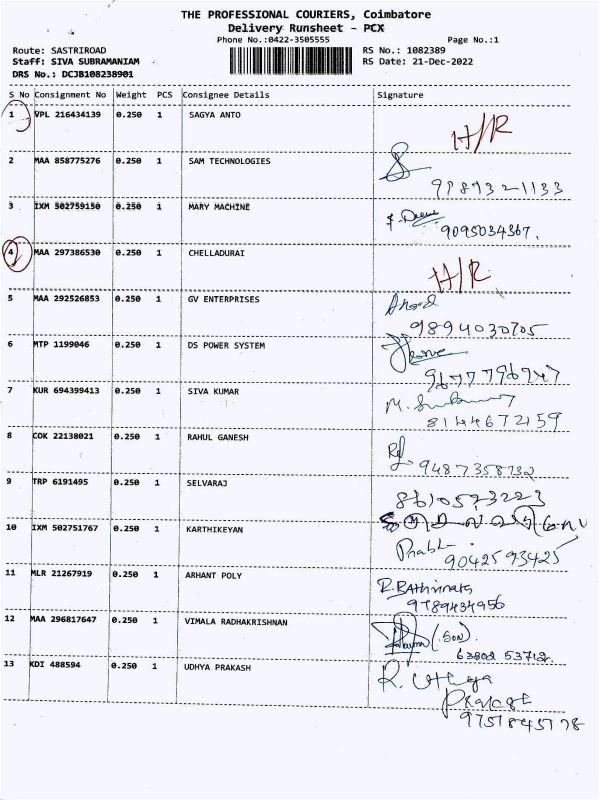 THE PROFESSIONAL COURIERS, Coimbatore
Delivery Runsheet - PCX
Phone No.:0422-3505555 Page No.:1
Route: SASTRIROAD RS No.: 1082389
Staff: SIVA SUBRAMANIAM RS Date: 21-Dec-2022
DRS No.: DCJB108238901
S No Consignment No Weight PCS Consignee Details Signature
1 VPL 216434139 0.250 1 SAGYA ANTO
H/R
2 MAA 858775276 0.250 1 SAM TECHNOLOGIES
3 IXM 502759150 0.250 1 MARY MACHINE
9095034367.
4 MAA 297386530 0.250 1 CHELLADURAI
H/R
5 MAA 292526853 0.250 1 GV ENTERPRISES
9894030705
6 MTP 1199046 0.250 1 DS POWER SYSTEM
9677796947
7 KUR 694399413 0.250 1 SIVA KUMAR
8144672159
8 COK 22138021 0.250 1 RAHUL GANESH
9487358732
9 TRP 6191495 0.250 1 SELVARAJ
8610573223
10 IXM 502751767 0.250 1 KARTHIKEYAN
9042593425
11 MLR 21267919 0.250 1 ARHANT POLY
9789434956
12 MAA 296817647 0.250 1 VIMALA RADHAKRISHNAN
(SON).
63802 53712.
13 KDI 488594 0.250 1 UDHYA PRAKASH
R. Uthya
Prakash
9751845778